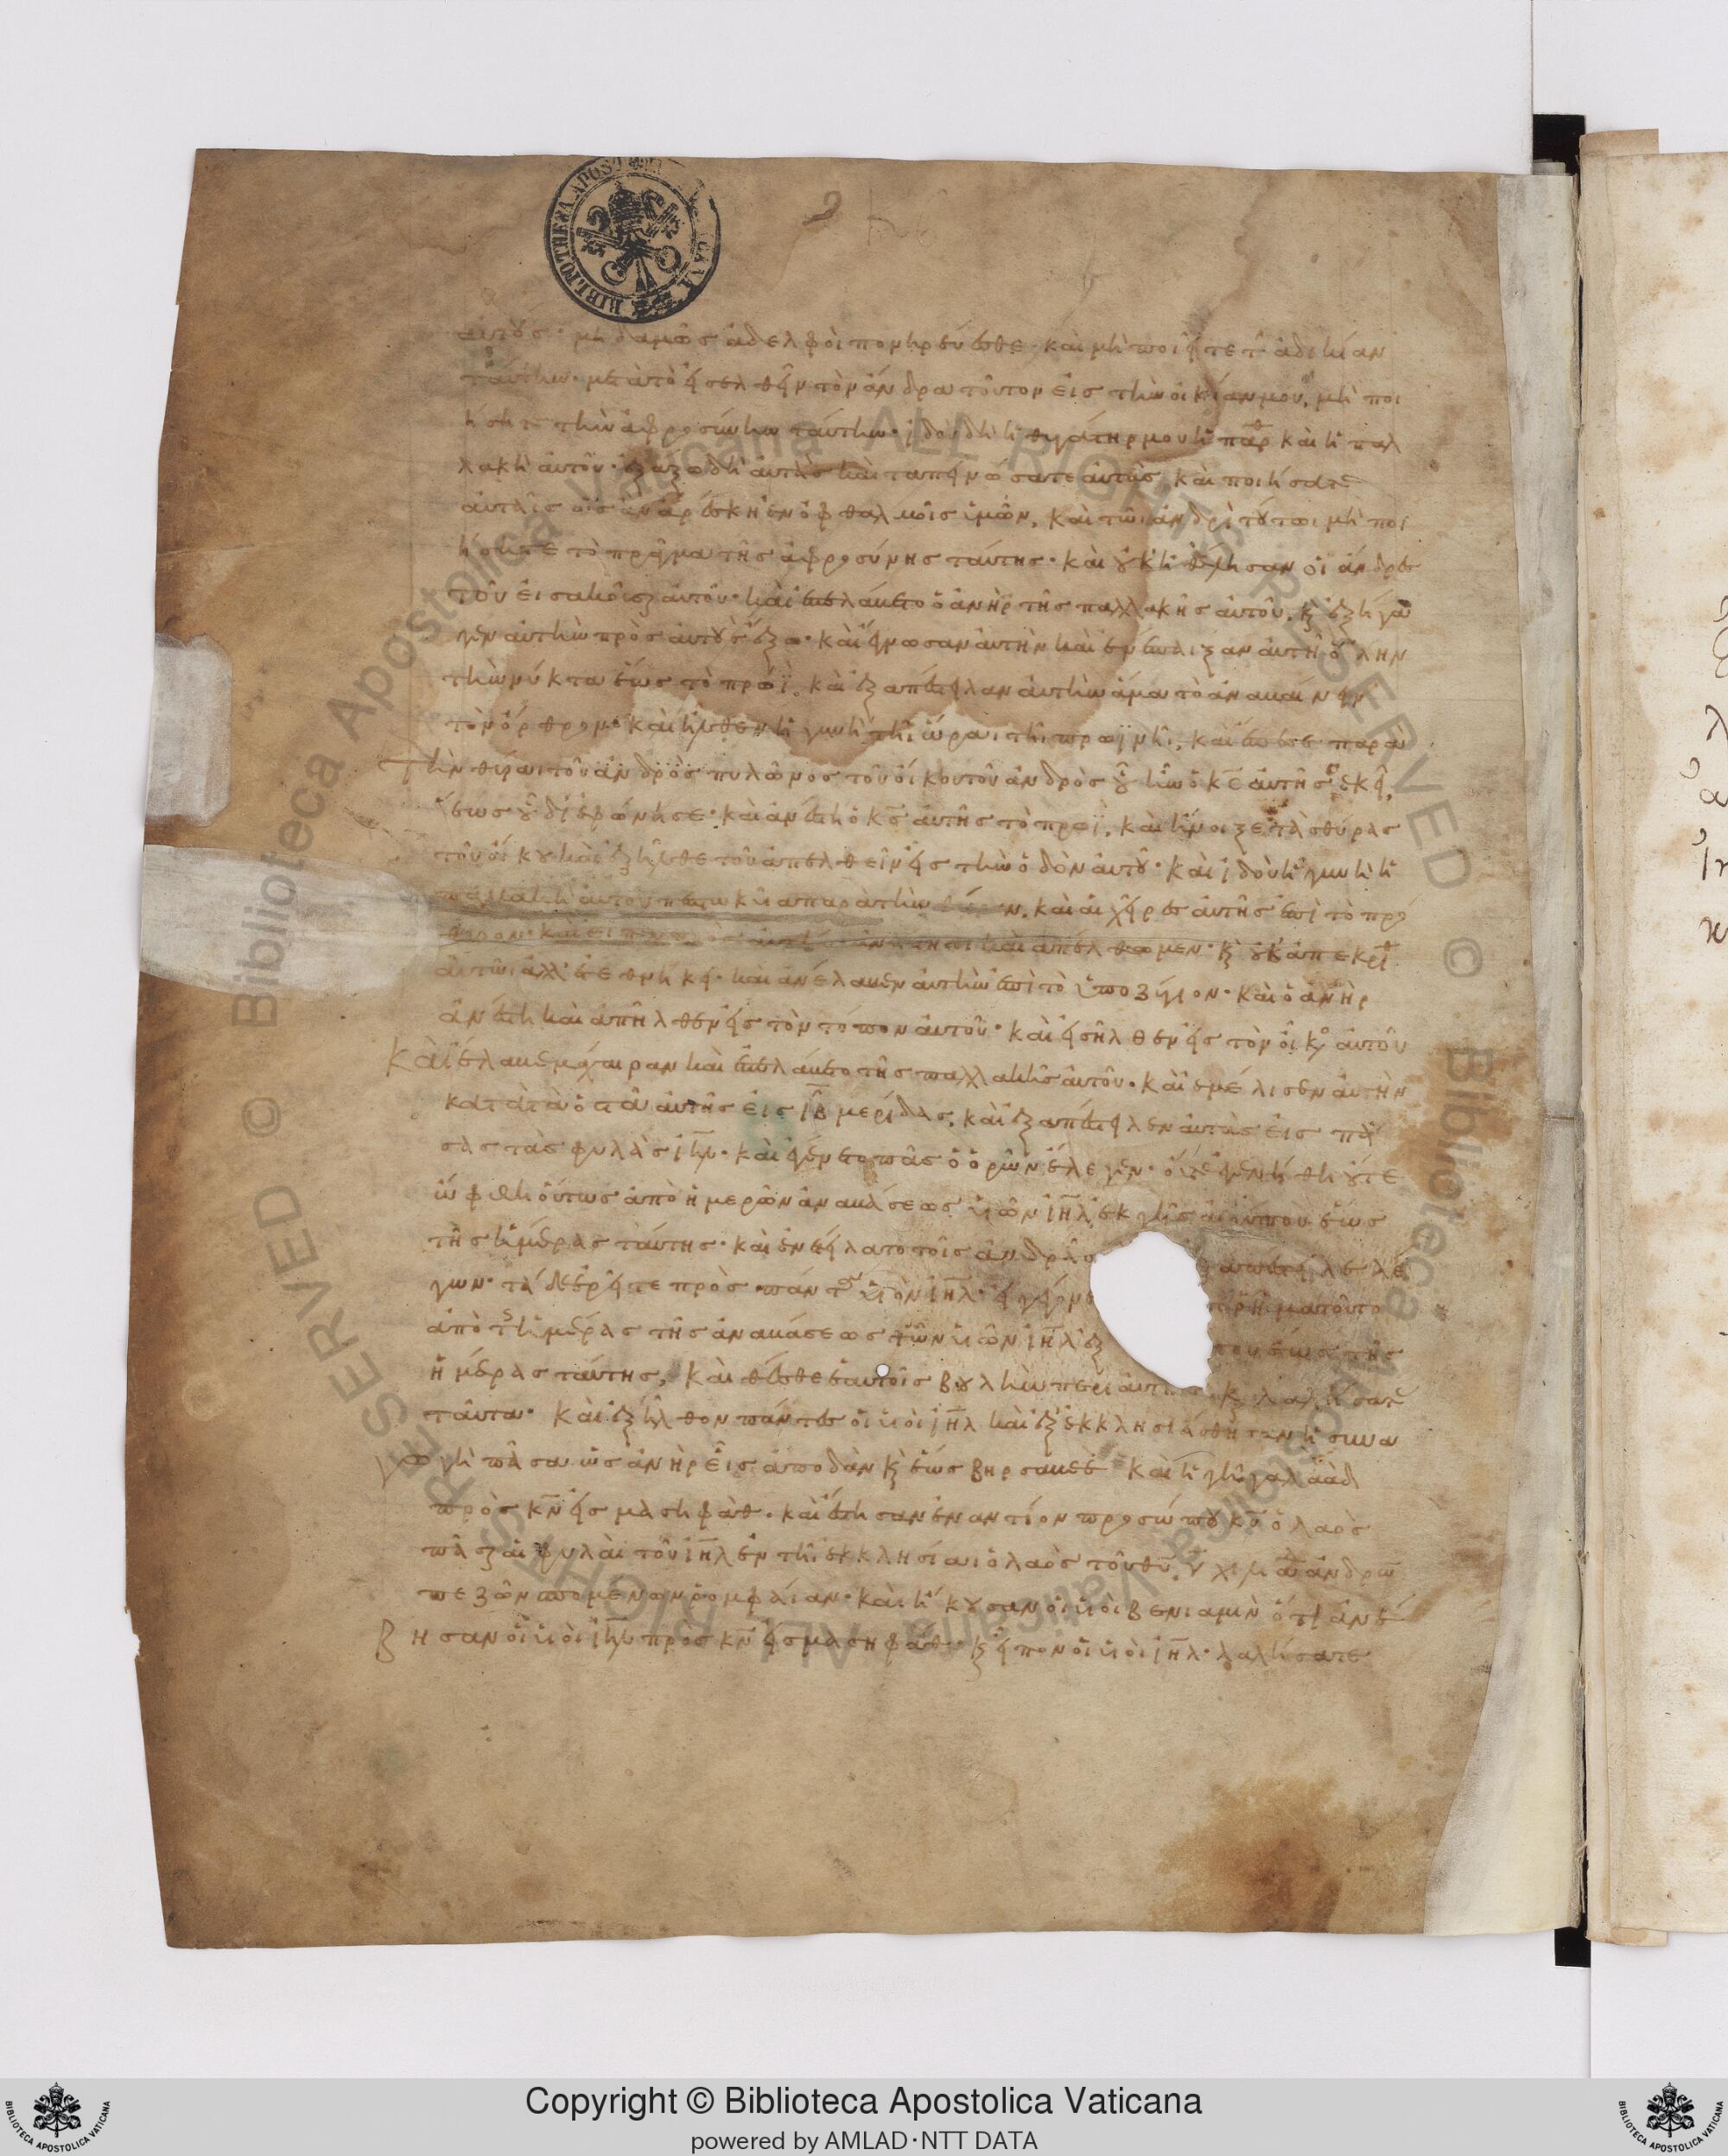 αὐτούς· μηδαμῶς ἀδελφοὶ πονηρεύσθε· καὶ μὴ ποιῆτε τ ἀδικίαν
ταύτην· μετὰ τὸ εἰσελθεῖν τὸν ἄνδρα τοῦτον εἰς τὴν οἰκίαν μου, μὴ ποι
ήσητε τὴν ἀφροσύνην ταύτην· ἰδοὺ δὴ ἡ θυγάτηρ μου ἡ παρ καὶ ἡ παλ
λακὴ αὐτοῦ· ἐξάξω δὴ αὐτὰς καὶ ταπεινώσατε αὐτὰς, καὶ ποιήσατε
αὐταῖς ὡς ἂν ἀρέσκη ἐν ὀφθαλμοῖς ὑμῶν, καὶ τῶι ἀνδρὶ τούτωι μὴ ποι
ήσητε τὸ πρᾶγμα τῆς ἀφροσύνης ταύτης· καὶ οὐκ ἠθέλησαν οἱ ἄνδρες
τοῦ εἰσακοῦσαι αὐτοῦ· καὶ ἐπελάβετο ὁ ἀνὴρ τῆς παλλακῆς αὐτοῦ, κ ἐξήγα
γεν αὐτὴν πρὸς αὐτοὺς ἔξω· καὶ ἔγνωσαν αὐτὴν καὶ ἐνέπαιξαν αὐτῆ ὅλην
τὴν νύκτα ἕως τὸ πρωΐ, καὶ ἐξαπέστειλαν αὐτὴν ἅμα τὸ ἀναβαίνειν
τὸν ὄρθρον· καὶ ἦλθεν ἡ γυνὴ τῆι ὥραι τῆι πρωϊνῆι, καὶ ἔπεσε παρὰ
τὴν θύραι τοῦ ἀνδρὸς πυλῶνος τοῦ οἴκου τοῦ ἀνδρὸς οὗ ἦν ὁ κς αὐτῆς ἐκεῖ,
ἕως οὗ διέφώνησε· καὶ ἀνέστη ὁ κς αὐτῆς τὸ πρωΐ, καὶ ἤνοιξε τὰς θύρας
τοῦ οἴκου καὶ ἐξῆλθε τοῦ ἀπελθεῖν εἰς τὴν ὁδὸν αὐτοῦ· καὶ ἰδοὺ ἡ γυνὴ ἡ
παλλακὴ αὐτοῦ πεπτωκυῖα παρὰ τὴν θύραν, καὶ αἱ χεῖρες αὐτῆς ἐπὶ τὸ πρό
θυρον· καὶ εἶπεν πρὸς αὐτήν ἀνάστηθι καὶ ἀπέλθωμεν· κ οὐκ ἀπεκρίθ
αὐτῶι ἀλλ' ἐτεθνήκει· καὶ ἀνέλαβεν αὐτὴν ἐπὶ τὸ ὑποζύγιον· καὶ ὁ ἀνὴρ
ἀνέστη καὶ ἀπῆλθεν εἰς τὸν τόπον αὐτοῦ· καὶ εἰσῆλθεν εἰς τὸν οἶκον αὐτοῦ
Καὶ ἔλαβε μάχαιραν καὶ ἐπελάβετο τῆς παλλακῆς αὐτοῦ· καὶ ἐμέλισεν αὐτὴν
κατὰ τὰ ὀστᾶ αὐτῆς εἰς ιβ μερίδας, καὶ ἐξαπέστειλεν αὐτὰς εἰς πά
σας τὰς φυλὰς ιηλ· καὶ ἐγένετο πᾶς ὁ ὁρῶν ἔλεγεν· οὔτε ἐγενήθη οὔτε
ὤφθη οὕτως ἀπὸ ἡμερῶν ἀναβάσεως υἱῶν ιηλ ἐκ γῆς αἰγύπτου ἕως
τῆς ἡμέρας ταύτης· καὶ ἐνετείλατο τοῖς ἀνδράσ ξαπέστειλε λέ
γων· τάδε ἐρεῖτε πρὸς πάντα υἱὸν ιηλ· εἰ γέγονε ῥῆμα τοῦτο
ἀπὸ τῆς ἡμέρας τῆς ἀναβάσεως τῶν υἱῶν ιηλ ἐξ που ἕως τῆς
ἡμέρας ταύτης, καὶ θέσθε ἑαυτοῖς βουλὴν περὶ αὐτῆς κ λαλήσατε
ταῦτα· Καὶ ἐξῆλθον πάντες οἱ υἱοὶ ιηλ καὶ ἐξεκκλησιάσθησαν ἡ συνα
γωγὴ πᾶσα ὡς ἀνὴρ εἷς ἀπὸ δὰν κ ἕως βηρσαβεέ καὶ ἡ γῆ γαλαάδ
πρὸς κν εἰς μασηφάθ· καὶ ἔστησαν ἐναντίον προσώπου κυ ὁ λαὸς
πᾶσαι φυλαὶ τοῦ ιηλ ἐν τῆι ἐκκλησίαι ὁ λαὸς τοῦ θυ, υ χιλι ἀνδρῶ
πεζῶν σπομένων ῥομφαίαν· καὶ ἤκουσαν οἱ υἱοὶ βενιαμὶν ὅτι ἀνέ
βησαν οἱ υἱοὶ ιηλ πρὸς κν εἰς μασηφάθ· κ εἶπον οἱ υἱοὶ ιηλ· λαλήσατε
Copyright © Biblioteca Apostolica Vaticana
powered by AMLAD·NTT DATA